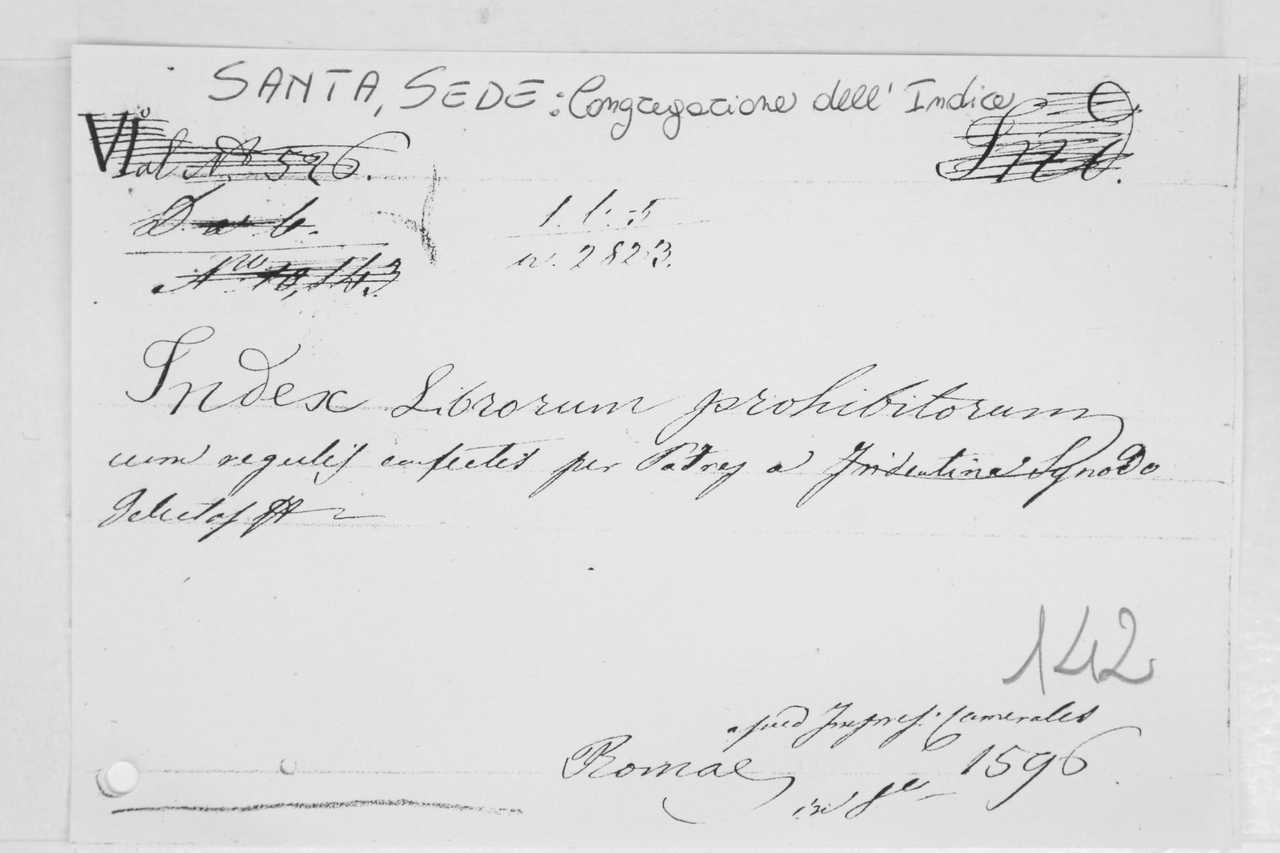 SANTA SEDE: Congregazione dell' Indice
Ind.
al N.º 526.
D a 6.
1. l. 5
Nro 10,143
n. 2823.
Index Librorum prohibitorum
cum regulis confectis per Patres a Tridentina Synodo
delectos
142
apud Impress. Camerales
Romae 1596
in 8º